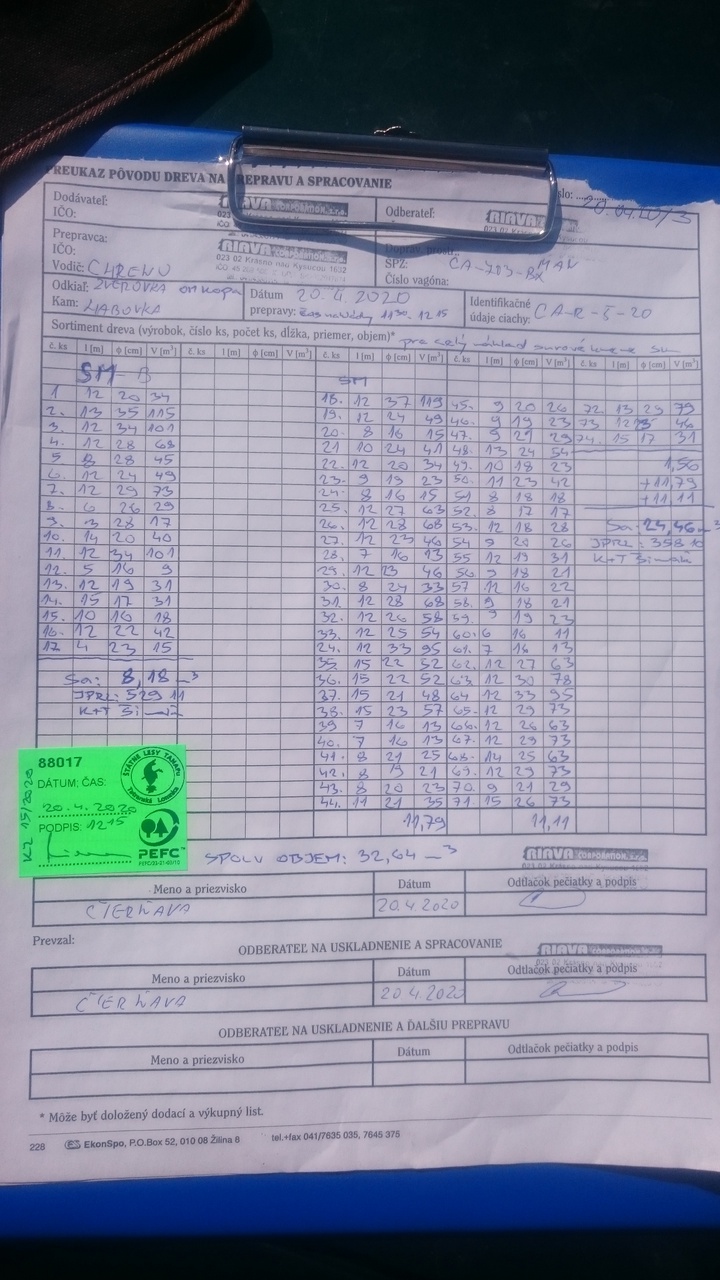 PREUKAZ PÔVODU DREVA NA PREPRAVU A SPRACOVANIE
Dodávateľ:
IČO:
RIAVA CORPORATION, s.r.o.
Odberateľ:
RIAVA
Prepravca:
IČO:
RIAVA CORPORATION, s.r.o.
023 02 Krásno nad Kysucou 1632
Vodič: CHRENU
SPZ: CA-713-BX MAN
Číslo vagóna:
Odkiaľ: ZVEROVKA
Kam: HABOVKA
Dátum 20.4.2020
prepravy: 11 30 - 12 15
Identifikačné
údaje ciachy: CA-R-5-20
Sortiment dreva (výrobok, číslo ks, počet ks, dĺžka, priemer, objem)* pre celý náklad
č. ks l [m] ϕ [cm] V [m³] č. ks l [m] ϕ [cm] V [m³] č. ks l [m] ϕ [cm] V [m³] č. ks l [m] ϕ [cm] V [m³] č. ks l [m] ϕ [cm] V [m³]
SM - B SM
1 12 20 34 18. 12 37 119 45. 9 20 26 72. 13 29 79
2. 13 35 115 19. 12 24 49 46. 9 19 23 73 12 46
3. 12 34 101 20. 8 16 15 47. 9 21 29 74. 15 17 31
4. 12 28 68 21 10 24 41 48. 13 24 54
5 8 28 45 22. 12 20 34 49. 10 18 23 1,56
6. 12 24 49 23. 9 19 23 50. 11 23 42 +11,79
7. 12 29 73 24. 8 16 15 51 8 18 18 +11,11
8. 6 26 29 25. 12 27 63 52. 8 17 17
9. 3 28 17 26. 12 28 68 53. 12 18 28 Sa: 24,46 m³
10. 14 20 40 27. 12 23 46 54 9 20 26 JPRL: 358 10
11. 12 34 101 28. 7 16 13 55 12 19 31 K+T
12. 5 16 9 29. 12 23 46 56 9 18 21
13. 12 19 31 30. 8 24 33 57 12 16 22
14. 15 17 31 31. 12 28 68 58. 9 18 21
15. 10 16 18 32. 12 26 58 59. 9 19 23
16. 12 22 42 33. 12 25 54 60. 6 16 11
17. 4 23 15 24. 12 33 95 61. 7 16 13
35. 15 22 52 62. 12 27 63
Sa: 8,18 m³ 36. 15 22 52 63. 12 30 78
JPRL: 529 11 37. 15 21 48 64 12 33 95
K+T 38. 15 23 57 65. 12 29 73
39 7 16 13 66. 12 26 63
40. 7 16 13 67. 12 29 73
41. 8 21 25 68. 14 25 63
42. 8 19 21 69. 12 29 73
43. 8 20 23 70. 9 21 29
44. 11 21 35 71. 15 26 73
11,79 11,11
88017
DÁTUM; ČAS:
20.4.2020
PODPIS: 12 15
ŠTÁTNE LESY TANAPU
Tatranská Lomnica
PEFC
KZ 15/2020
SPOLU OBJEM: 32,64 m³
RIAVA CORPORATION, s.r.o.
Meno a priezvisko Dátum Odtlačok pečiatky a podpis
ČIERŇAVA 20.4.2020
Prevzal:
ODBERATEĽ NA USKLADNENIE A SPRACOVANIE
RIAVA CORPORATION, s.r.o.
Meno a priezvisko Dátum Odtlačok pečiatky a podpis
ČIERŇAVA 20.4.2020
ODBERATEĽ NA USKLADNENIE A ĎALŠIU PREPRAVU
Meno a priezvisko Dátum Odtlačok pečiatky a podpis
* Môže byť doložený dodací a výkupný list.
228 EkonSpo, P.O.Box 52, 010 08 Žilina 8 tel.+fax 041/7635 035, 7645 375